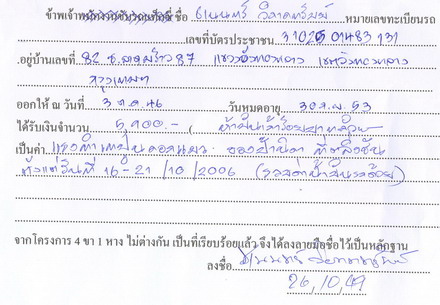 ข้าพเจ้าพนักงานขับรถแท็กซี่ ชื่อ ธเนนทร์ หมายเลขทะเบียนรถ
เลขที่บัตรประชาชน 31020 01483 131
อยู่บ้านเลขที่ 82 ซ.ลาดพร้าว 87 แขวงวังทองหลาง เขตวังทองหลาง
กรุงเทพฯ
ออกให้ ณ วันที่ 3 ต.ค. 46 วันหมดอายุ 30 ส.ค. 53
ได้รับเงินจำนวน 5,900.- ( ห้าพันเก้าร้อยบาทถ้วน
เป็นค่า ของป้านิดา ที่ตลิ่งชัน
ตั้งแต่วันที่ 16-21 /10 /2006 (รวมค่าน้ำมันรถด้วย)
จากโครงการ 4 ขา 1 หาง ไม่ต่างกัน เป็นที่เรียบร้อยแล้ว จึงได้ลงลายมือชื่อไว้เป็นหลักฐาน
ลงชื่อ ธเนนทร์
26, 10, 49